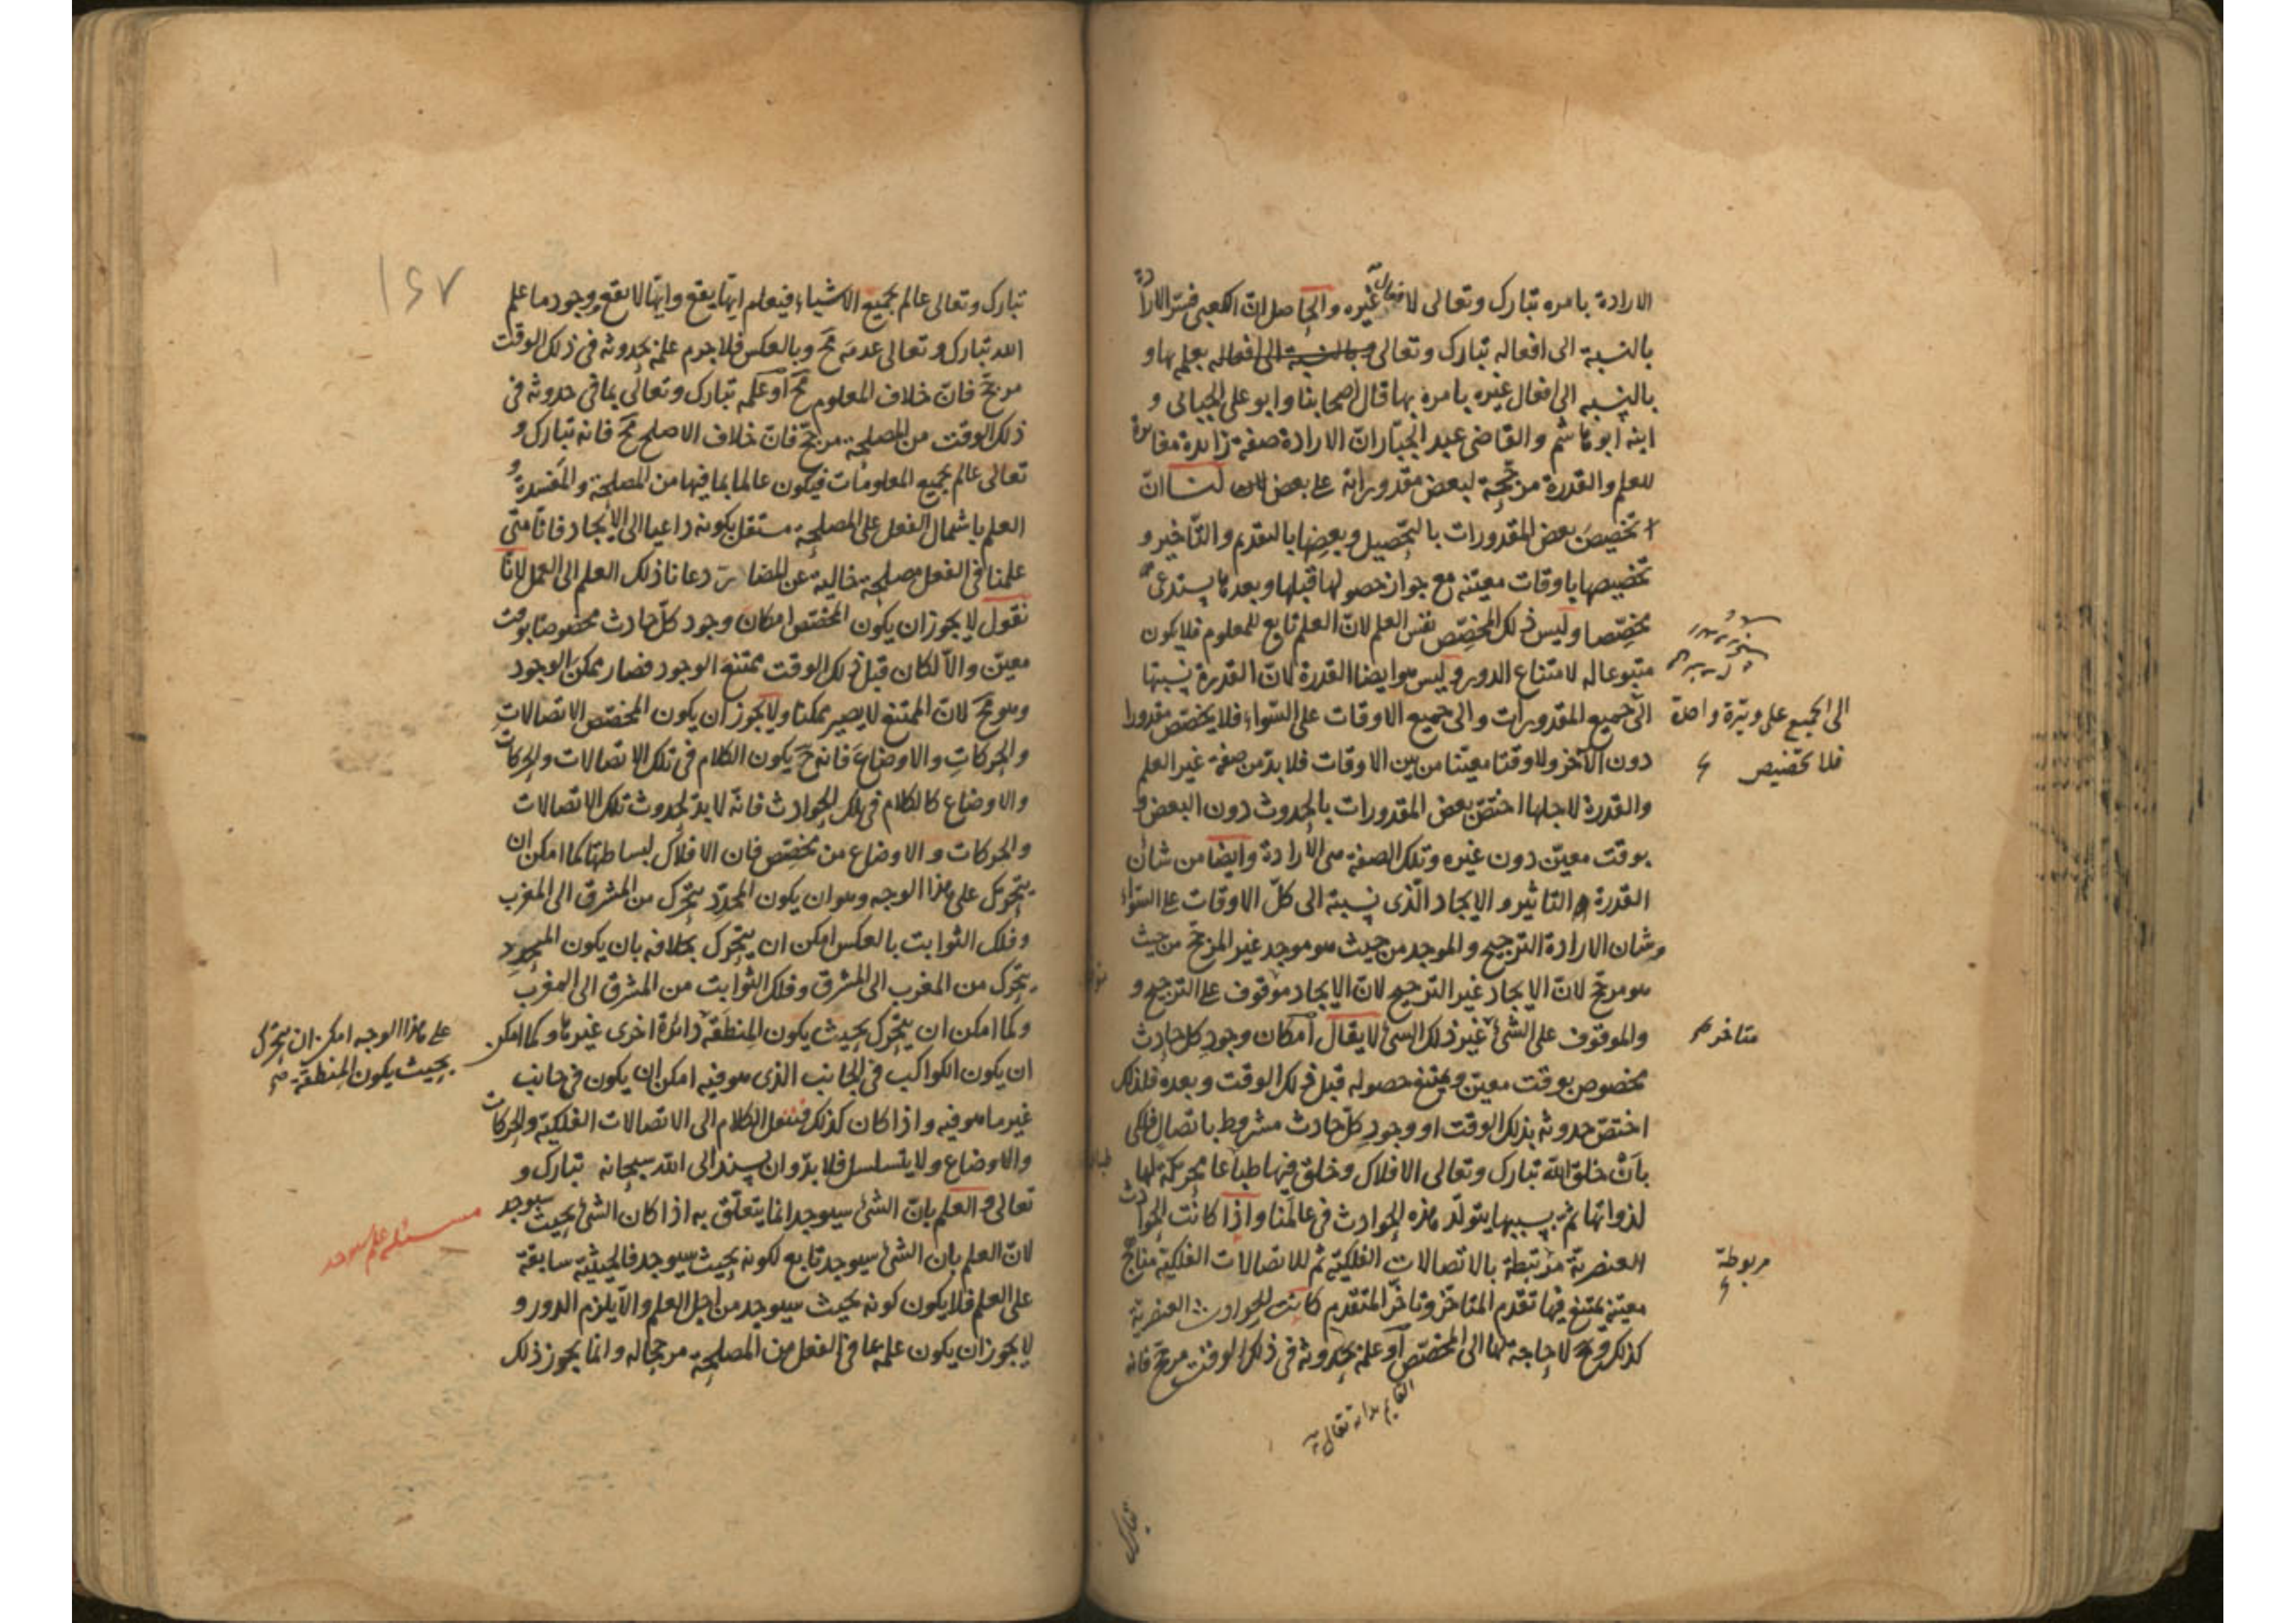 الارادة بامره تبارك وتعالى لافعال غيره والحاصل ان الكعبى فسّر الارادة
بالنسبة الى افعاله تبارك وتعالى وبالنسبة الى افعاله بعلمه بها و
بالنسبه الى افعال غيره بامره بها قال اصحابنا وابو على الجبائى و
ابنه ابو هاشم والقاضى عبد الجبّار انّ الارادة صفة زائدة مغايرة
للعلم والقدرة مرجّحة لبعض مقدوراته على بعض لنا انّ
تخصيص بعض المقدورات بالتحصيل وبعضها بالتقديم والتّاخير و
تخصيصها باوقات معيّنه مع جواز حصولها قبلها وبعدها يستدعى
مخصّصا وليس ذلك المخصّص نفس العلم لانّ العلم تابع للمعلوم فلا يكون
متبوعا له لامتناع الدور وليس هو ايضا القدرة لانّ القدرة نسبتها
الى جميع المقدورات والى جميع الاوقات على السّواء فلا يخصّص مقدورا
الى الجميع على وتيرة واحدة
فلا تخصيص
دون الآخر ولا وقتا معيّنا من بين الاوقات فلا بدّ من صفة غير العلم
والقدرة لاجلها اختصّ بعض المقدورات بالحدوث دون البعض و
بوقت معيّن دون غيره وتلك الصفة هى الارادة وايضا من شأن
القدرة التاثير والايجاد الّذى نسبته الى كلّ الاوقات على السّواء
وشان الارادة الترجيح والموجد من حيث هو موجد غير المرجّح من حيث
هو مرجّح لانّ الايجاد غير الترجيح لانّ الايجاد موقوف على الترجيح و
متاخر
والموقوف على الشئ غير ذلك الشئ لا يقال امكان وجود كل حادث
مخصوص بوقت معيّن ويمتنع حصوله قبل ذلك الوقت وبعده فلذلك
اختصّ حدوثه بذلك الوقت او وجود كلّ حادث مشروط باتصال فلكى
بأنْ خلق اللّه تبارك وتعالى الافلاك وخلق فيها طباعا محركة لها
لذواتها ثم بسببها يتولّد هذه الحوادث فى عالمنا واذا كانت الحوادث
العنصريّة مرتبطة بالاتصالات الفلكيّة ثم للاتصالات الفلكيّة مناهج
مربوطة
معيّنة يمتنع فيها تقدم المتاخر وتاخّر المتقدم كانت الحوادث العنصرية
كذلك وح لا حاجة بها الى المخصّص او علمه بحدوثه فى ذلك الوقت مرجّح فانه
القايم بذاته تعالى
تبارك
١٤٧
تبارك وتعالى عالم بجميع الاشياء فيعلم ايّها يقع وايّها لا يقع ووجود ما علم
اللّه تبارك وتعالى عدمه مح وبالعكس فلا جرم علمه بحدوثه فى ذلك الوقت
مرجّح فانّ خلاف المعلوم مح او علمه تبارك وتعالى بما فى حدوثه فى
ذلك الوقت من المصلحة مرجّح فانّ خلاف الاصلح مح فانه تبارك و
تعالى عالم بجميع المعلومات فيكون عالما بما فيها من المصلحة والمفسدة و
العلم باشتمال الفعل على المصلحة مستقل بكونه داعيا الى الايجاد فانّا متى
علمنا فى الفعل مصلحة خالية عن المضارّ دعانا ذلك العلم الى العمل لانّا
نقول لا يجوز ان يكون المخصّص امكان وجود كلّ حادث مخصوصا بوقت
معيّن والاّ لكان قبل ذلك الوقت ممتنع الوجود فصار ممكن الوجود
وهو مح لانّ الممتنع لا يصير ممكنا ولا يجوز ان يكون المخصّص الاتصالات
والحركات والاوضاع فانه ح يكون الكلام فى تلك الاتصالات والحركات
والاوضاع كالكلام فى تلك الحوادث فانّه لا بدّ لحدوث تلك الاتصالات
والحركات والاوضاع من مخصّص فان الافلاك لبساطتها كما امكن ان
يتحرّك على هذا الوجه وهو ان يكون المحدّد يتحرك من المشرق الى المغرب
وفلك الثوابت بالعكس امكن ان يتحرّك بخلافه بان يكون المحدد
يتحرك من المغرب الى المشرق وفلك الثوابت من المشرق الى المغرب
وكما امكن ان يتحرّك بحيث يكون المنطقة دائرة اخرى غيرها وكما امكن
على هذا الوجه امكن ان يتحرك
بحيث يكون المنطقة
ان يكون الكواكب فى الجانب الذى هو فيه امكن ان يكون فى جانب
غير ما هو فيه واذا كان كذلك فننقل الكلام الى الاتصالات الفلكيّة والحركات
والاوضاع ولا يتسلسل فلا بدّ وان يسند الى اللّه سبحانه تبارك و
تعالى والعلم بانّ الشئ سيوجد انما يتعلّق به اذا كان الشئ بحيث سيوجد
لانّ العلم بان الشئ سيوجد تابع لكونه بحيث سيوجد فالحيثيّة سابقة
على العلم فلا يكون كونه بحيث سيوجد من اجل العلم والاّ يلزم الدور و
لا يجوز ان يكون علمه بما فى الفعل من المصلحة مرجحا له وانما يجوز ذلك